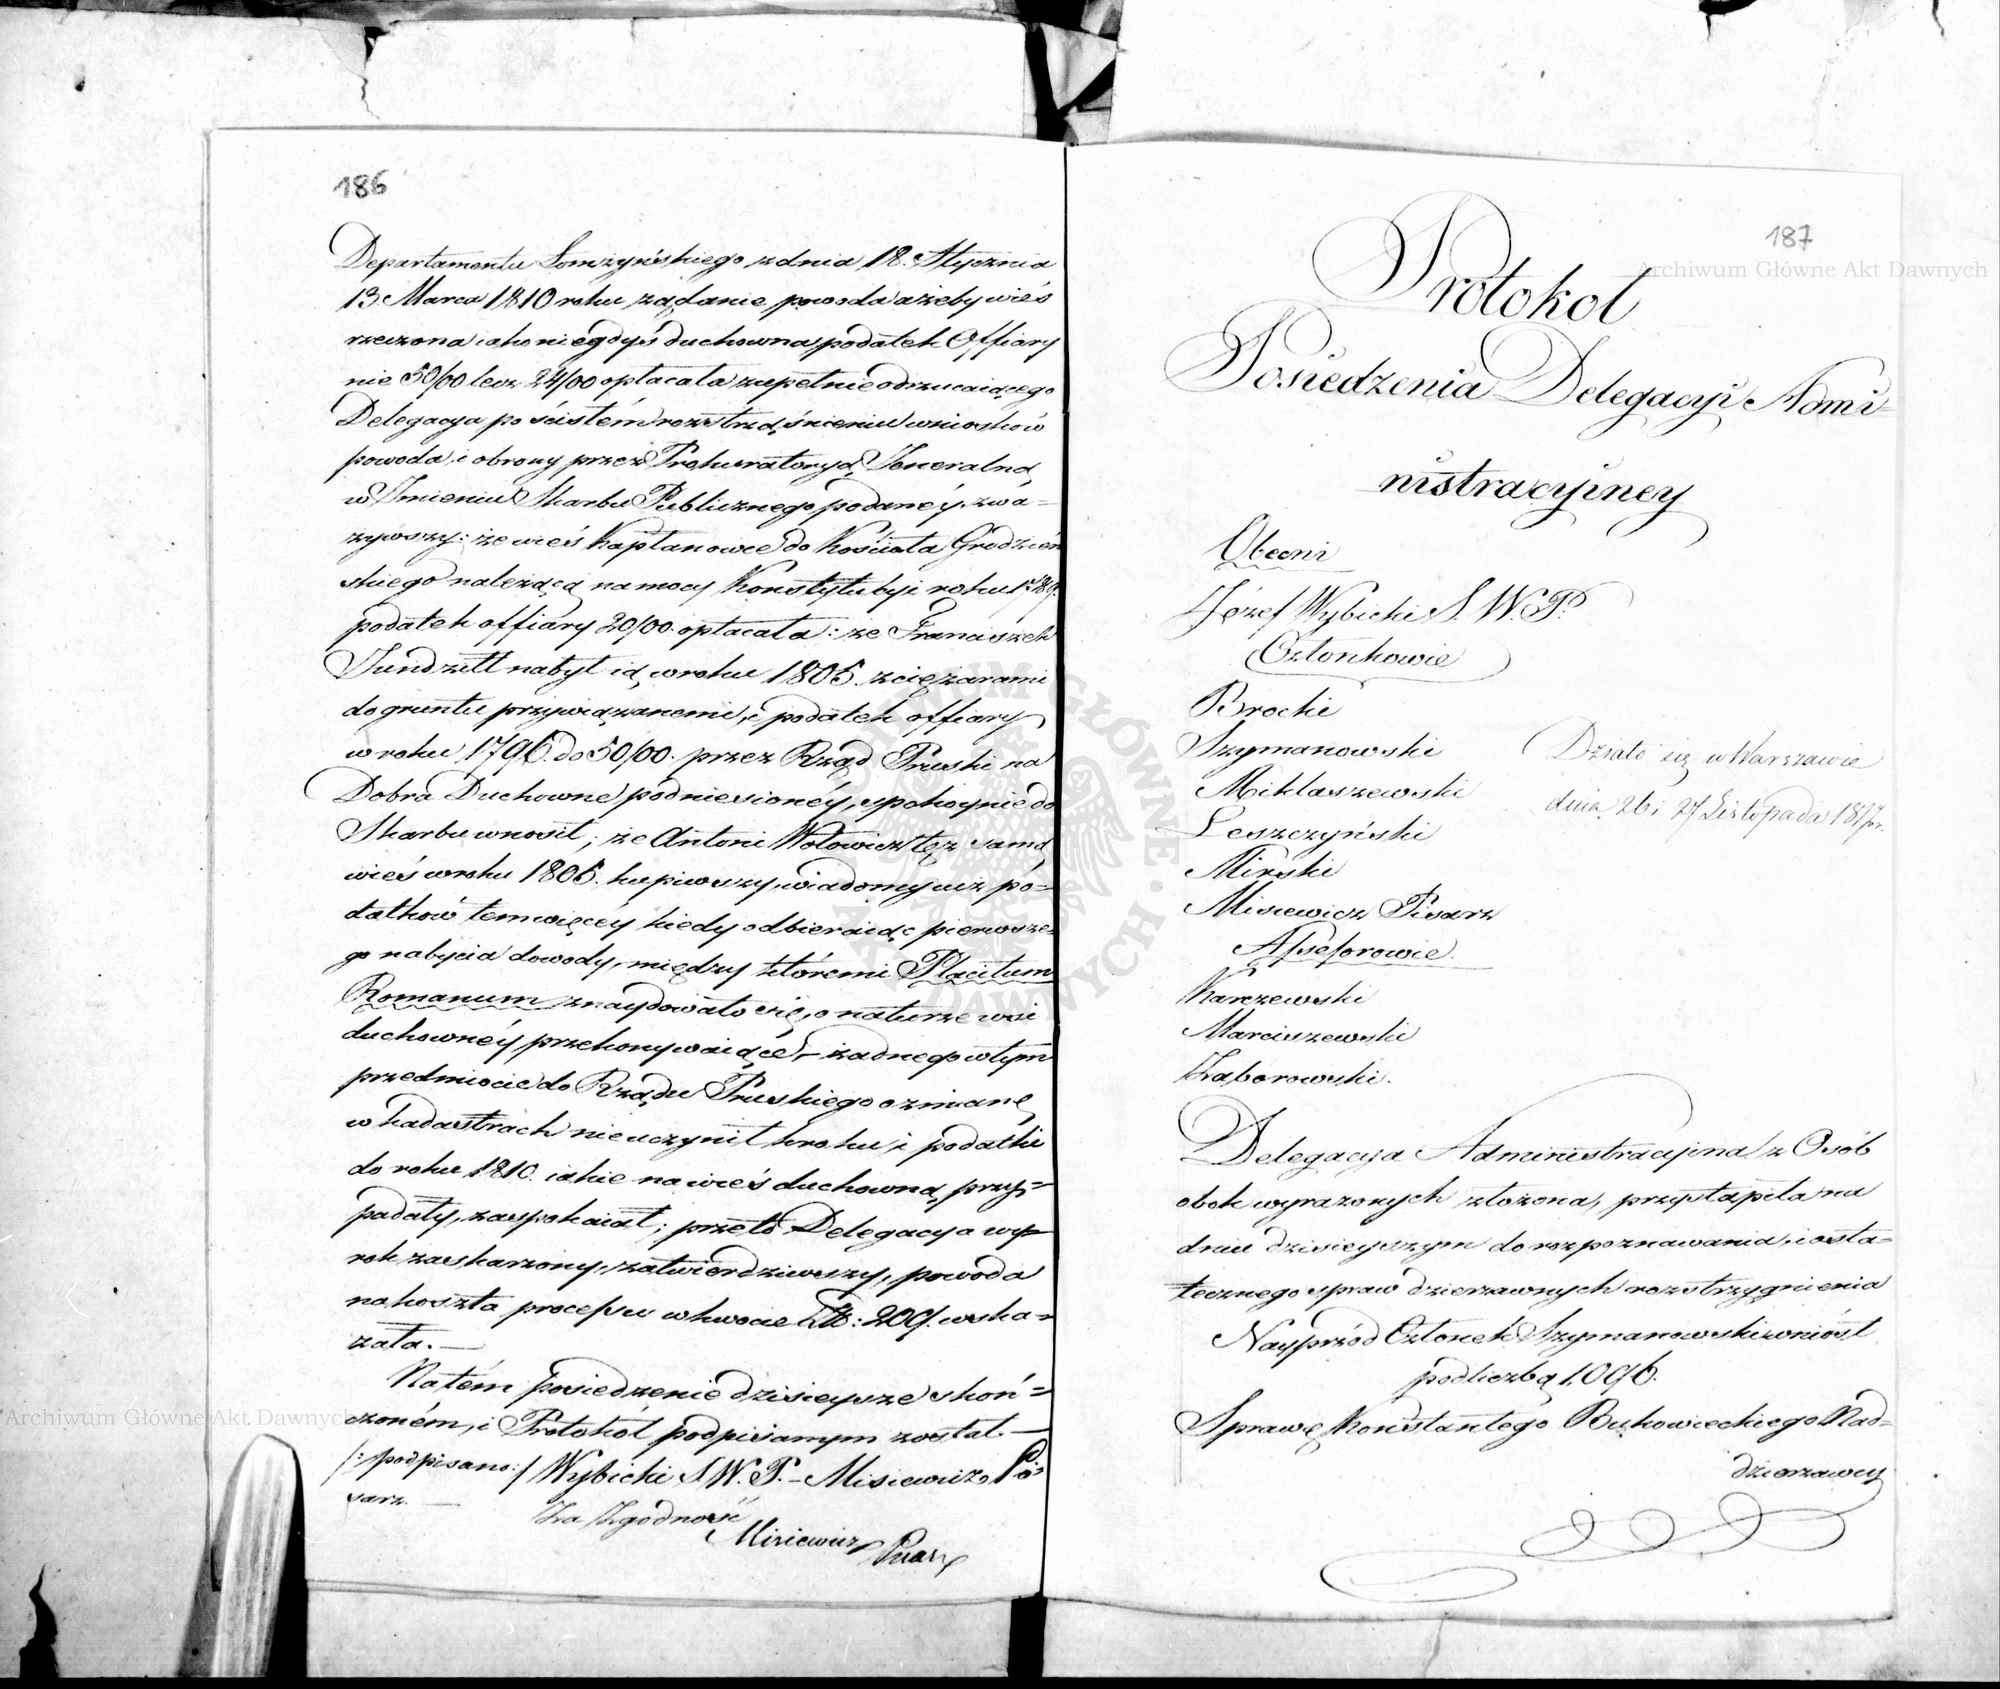 186
Departamentu Łomżyńskiego z dnia 18. Stycznia
13. Marca 1810 roku żądanie powoda ażeby wieś
rzeczona iako niegdyś duchowna podatek Offiary
nie 50/00 lecz 24/00 opłacała zupełnie odrzucaiącego
Delegacya po ścisłém rozstrząśnieniu wniosków
powoda i obrony przez Prokuratoryą Jeneralną
w Imieniu Skarbu Publicznego podaney, zwa=
żywszy: że wieś Kapłanowce do Kościoła Grodzień
skiego należąca na mocy Konstytucyi roku 1789.
podatek offiary 20/00. opłacała: że Franciszek
Jundziłł nabył ią w roku 1805. z ciężarami
do gruntu przywiązanemi, i podatek offiary
w roku 1796. do 50/00. przez Rząd Pruski na
Dobra Duchowne podniesionéy, spokoynie do
Skarbu wnosił; że Antoni Wołowicz tęż samą
wieś w roku 1806. kupiwszy, wiadomy iuż po=
datków temwięcéy kiedy odbieraiąc pierwsze=
go nabycia dowody, między któremi Placitum
Romanum znaydowało się, o naturze wsi
duchownéy przekonywaiące, – żadnego w tym
przedmiocie do Rządu Pruskiego o zmianę
w kadastrach nieuczynił kroku i podatki
do roku 1810. iakie na wieś duchowną przy=
padały, zaspokaiał; przeto Delegacya wy=
rok zaskarżony, zatwierdziwszy, powoda
na koszta processu w kwocie Złł: 209. wska=
zała. —
Na tém posiedzenie dzisieysze skoń=
czoném, i Protokół podpisanym został. —
/: podpisano: / Wybicki S. W. P. – Misiewicz Pi=
sarz. —
Za Zgodność
Misiewicz Pisarz
187
Protokół
Posiedzenia Delegacyi Admi=
nistracyiney
Obecni
Józef Wybicki S. W. P.
Członkowie
Brocki
Szymanowski
Miklaszewski
Leszczyński
Mirski
Misiewicz Pisarz
Assessorowie.
Karczewski
Marciszewski
Zaborowski.
Działo się w Warszawie
dnia 26 i 27 Listopada 1817 r.
Delegacya Administracyina z Osób
obok wyrażonych złożona, przystąpiła na
dniu dzisieyszym do rozpoznawania, i osta=
tecznego spraw dzierżawnych rozstrzygnienia
Nayprzód Członek Szymanowski wniósł
pod liczbą 1,096.
Sprawę Konstantego Bukowieckiego Nad=
dzierżawcy
Archiwum Główne Akt Dawnych
Archiwum Główne Akt Dawnych